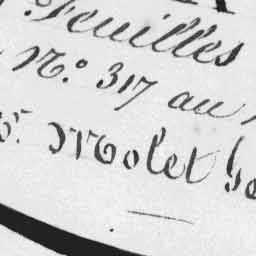 Feuilles
N.º 317 au
Molet